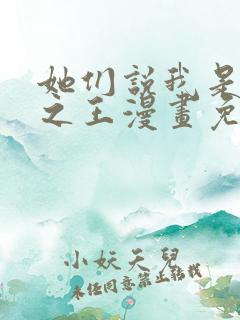 她们說我是
之王漫畫免
小妖天兒
未经同意禁止转载